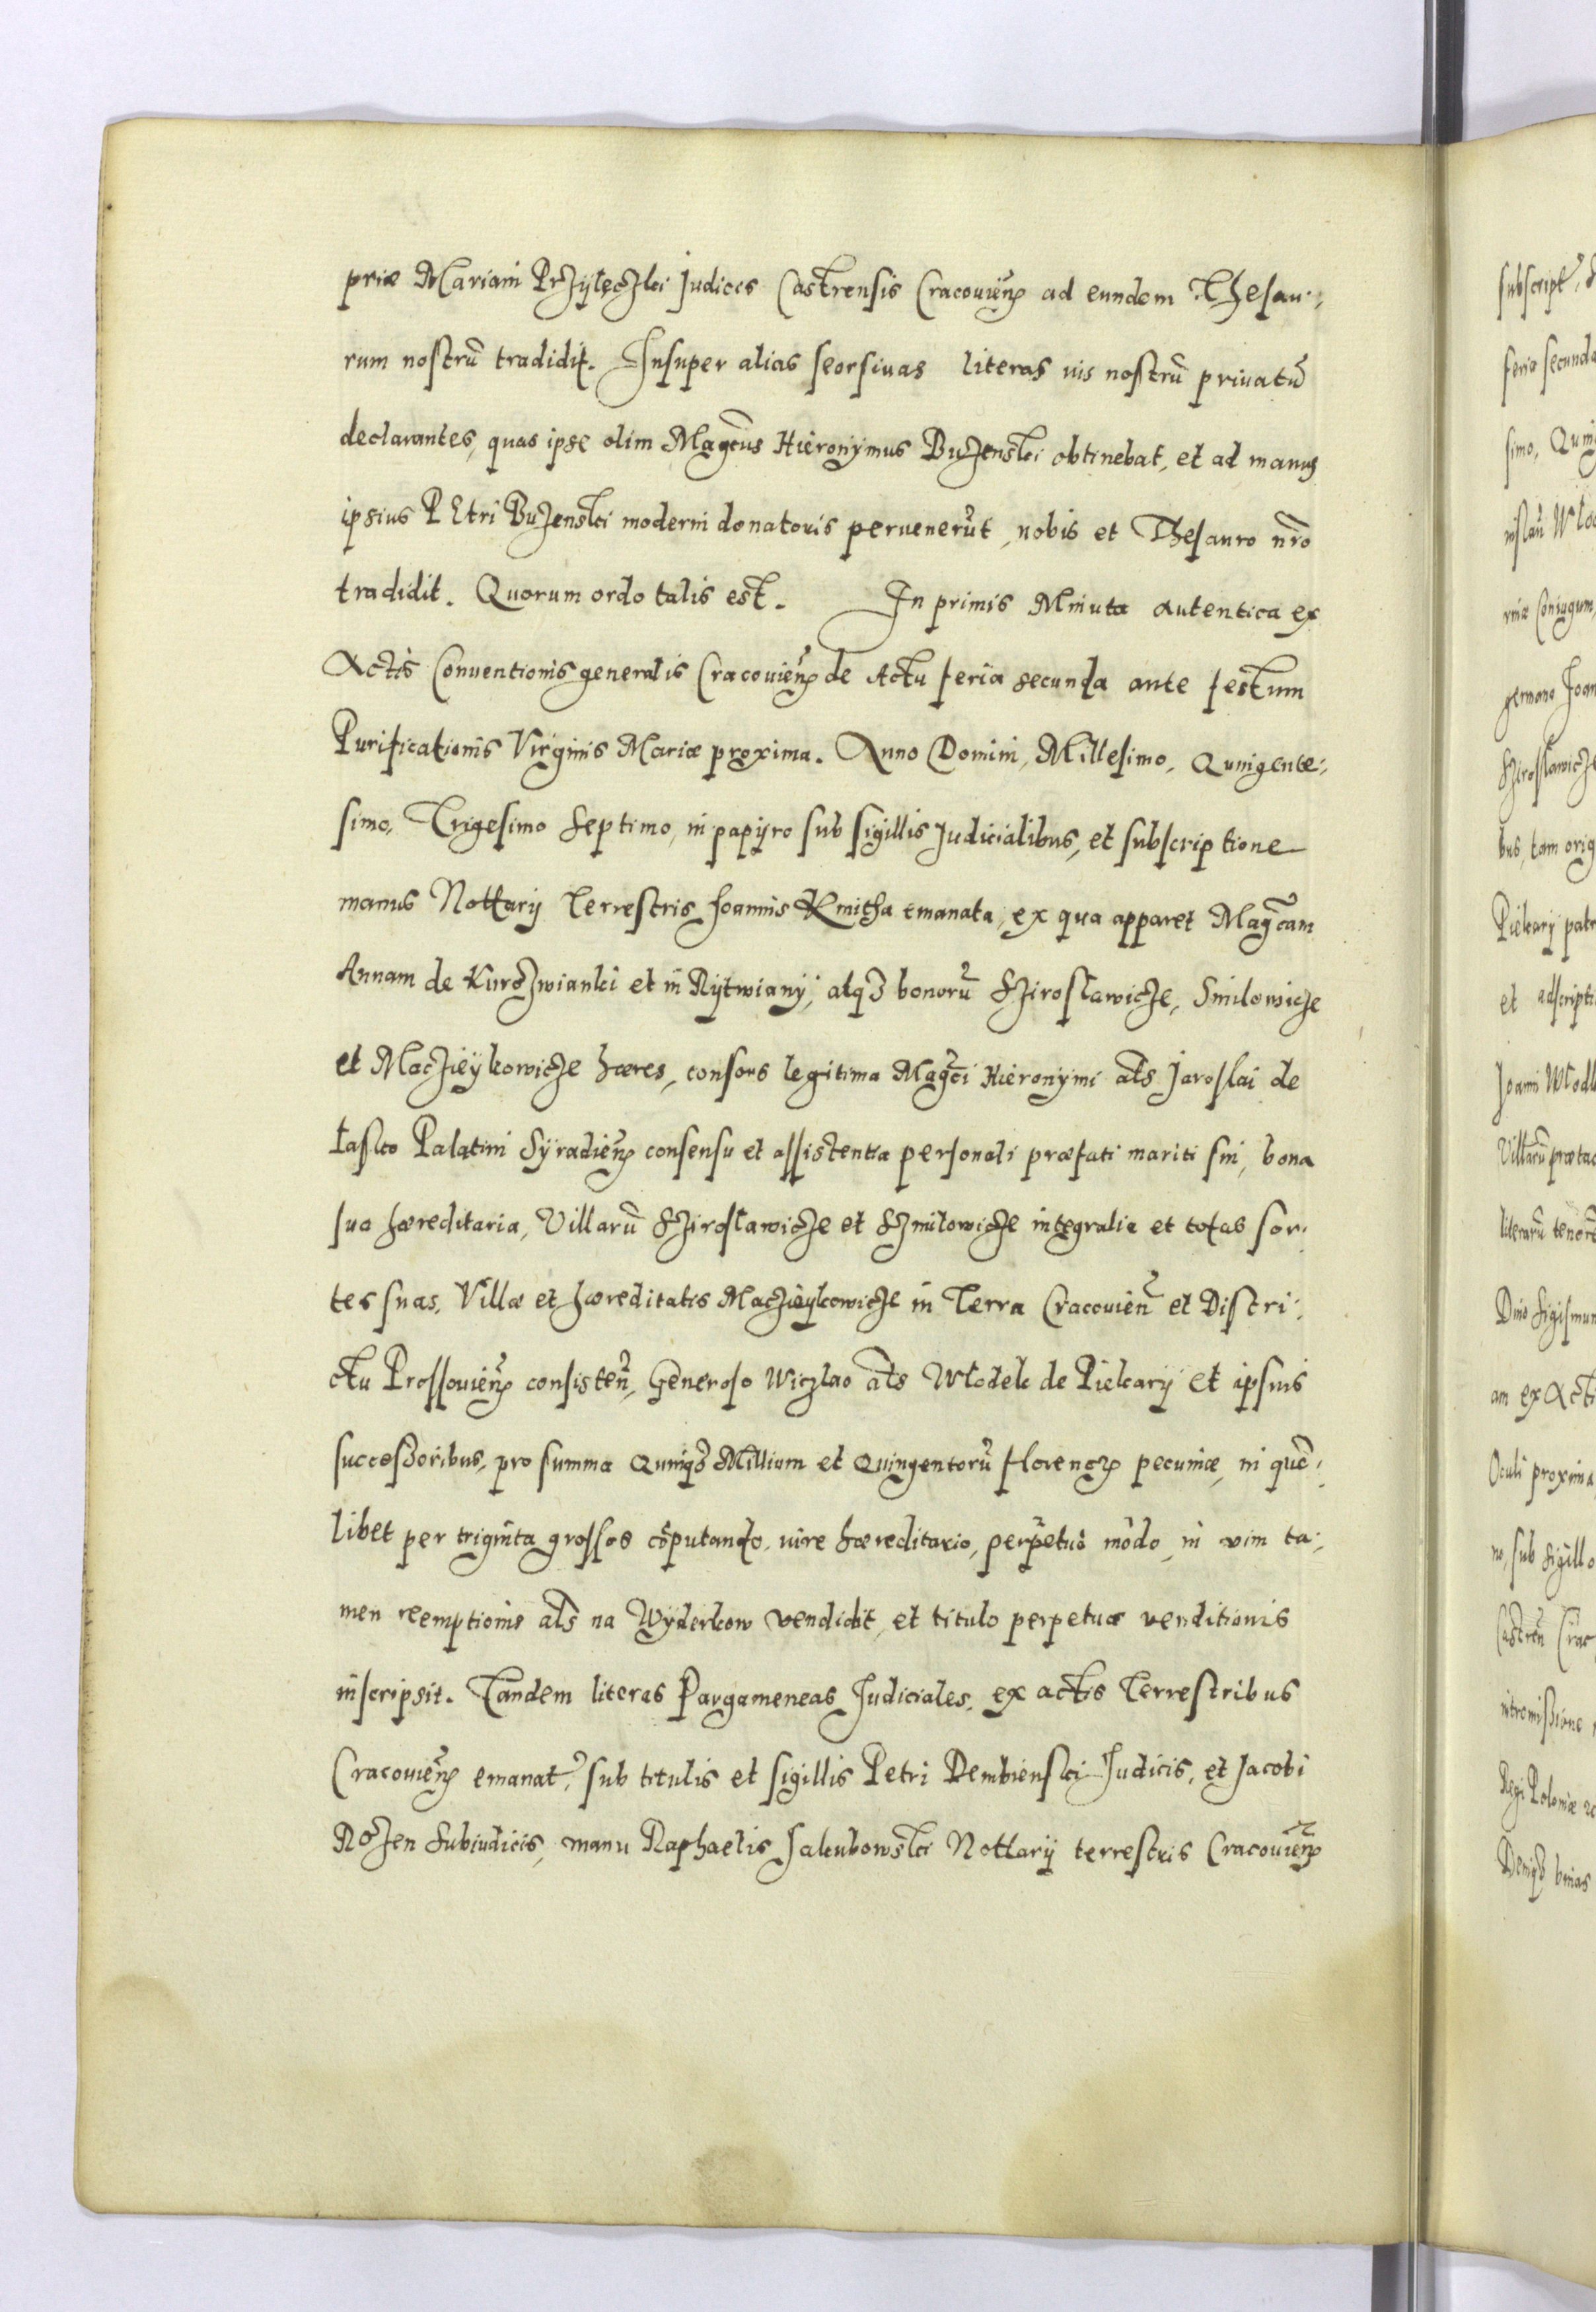 priæ Mariani Przÿlęczki Judices Castrensis Cracouien̄ ad eundem Thesau-
rum nostrū tradidit. Insuper alias seorsiuas literas uis nostrū priuatū
declarantes, quas ipse olim Magc̄us Hieronÿmus Buzenski obtinebat, et ad manus
ipsius PEtri Buzenski moderni donatoris peruenerūt, nobis et Thesauro nr̄o
tradidit. Quorum ordo talis est. In primis Minuta autentica ex
Actis Conuentionis generalis Cracouien̄ de Actu feria secunda ante festum
Purificationis Virginis Mariæ proxima. Anno Domini, Millesimo, Quingente-
simo, Trigesimo Septimo, in papÿro sub sigillis Judicialibus, et subscriptione
manus Nottarÿ Terrestris Joannis Kmitha emanata, ex qua apparet Magc̄am
Annam de Kurozwianki et in Rÿtwianÿ, atqȝ bonorū Sziroslawicze, Smilowicze
et Maczieÿkowicze hæres, consors legitima Magc̄i Hieronÿmi al̄s Jaroslai de
Łasko Palatini Sÿradien̄ consensu et assistentia personali præfati mariti sui, bona
sua hæreditaria, Villarū Sziroslawicze et Szmilowicze integralia et totas sor-
tes suas, Villæ et hæreditatis Maczieÿkowicze in Terra Cracouien̄ et Distri-
ctu Prossouien̄ consisten̄, Generoso Wiczlao al̄s Wlodek de Piekarÿ et ipsius
successoribus, pro summa Quinqȝ Millium et Quingentorū florenoꝝ pecuniæ, in quē-
libet per triginta grossos cōputando, iure hæreditario, perpetuo modo, in vim ta-
men reemptionis al̄s na Wÿderkow vendidit, et titulo perpetuæ venditionis
inscripsit. Tandem literas Pargameneas Judiciales, ex actis Terrestribus
Cracouien̄ emanat̄, sub titulis et sigillis Petri Dembienski Judicis, et Jacobi
Rozen Subiudicis, manu Raphaelis Jakubowski Nottarÿ terrestris Cracouien̄